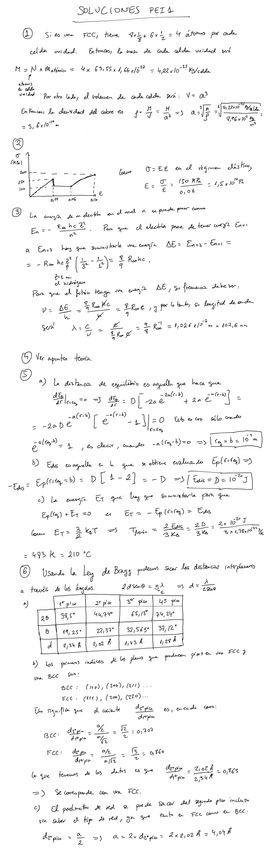 SOLUCIONES PEI 1
① Si es una FCC, tiene 8×1/8 + 6×1/2 = 4 átomos por cada
celda unidad. Entonces, la masa de cada celda unidad será
M = N × m atómica = 4 × 63,55 × 1,66×10⁻²⁷ = 4,22×10⁻²⁵ kg/celda
átomos en celda unidad
Por otro lado, el volumen de cada celda será: V = a³
Entonces la densidad del cobre es ρ = M/V = M/a³ => a = ∛(M/ρ) =
= 3,6×10⁻¹⁰ m
②
σ (MPa)
Como σ = Eε en el régimen elástico,
③ La energía de un electrón en el nivel n se puede poner como
En = - R∞hc Z²/n². Para que el electrón pase de tener energía En=1
a En=3 hay que suministrarle una energía ΔE = En=3 - En=1 =
= -R∞hc Z² (1/3² - 1/1²) = 8/9 R∞hc.
Para que el fotón tenga una energía ΔE, su frecuencia debe ser
y por lo tanto, su longitud de onda
será λ = c/ν
= 1,026×10⁻⁷ m = 102,6 nm
④ Ver apuntes teoría
⑤ a) La distancia de equilibrio es aquella que hace que
= -2aD e^-a(r-b) [e^-a(r-b) - 1] = 0 Esto es cero sólo cuando
e^-a(r₀-b) = 1, es decir, cuando -a(r₀-b) = 0 => r₀ = b = 10⁻⁹ m
b) Edis es aquella en la que se obtiene evaluando Ep(req) =>
-Edis = Ep(req = b) = D[1-2] = -D => Edis = D = 10⁻²⁰ J
c) La energía ET que hay que suministrarle para que
Ep(req) + ET = 0 es ET = -Ep(r=req) = Edis
= 483 K = 210 °C
⑥ Usando la Ley de Bragg podemos sacar las distancias interplanares
a través de los ángulos. 2d senθ = λ => d = λ/2senθ
a)
1er pico 2º pico 3er pico 4º pico
2θ 38,5° 44,74° 65,13° 74,24°
θ 19,25° 22,37° 32,565° 37,12°
d 2,34 Å 2,02 Å 1,43 Å 1,28 Å
b) Los primeros índices de los planos que producen picos en una FCC y
una BCC son:
BCC: (110), (200), (211)...
FCC: (111), (200), (220)...
Eso significa que el cociente d2ºpico/d1ºpico es, en cada caso:
BCC: d2ºpico/d1ºpico = (a/2)/(a/√2) = √2/2 = 0,707
FCC: d2ºpico/d1ºpico = (a/2)/(a/√3) = √3/2 = 0,866
Lo que tenemos de los datos es que d2ºpico/d1ºpico = 2,02 Å/2,34 Å = 0,863
=> Se corresponde con una FCC.
c) El parámetro de red se puede sacar del segundo pico incluso
sin saber el tipo de red, ya que tanto en FCC como en BCC:
d2ºpico = a/2 => a = 2×d2ºpico = 2×2,02 Å = 4,04 Å